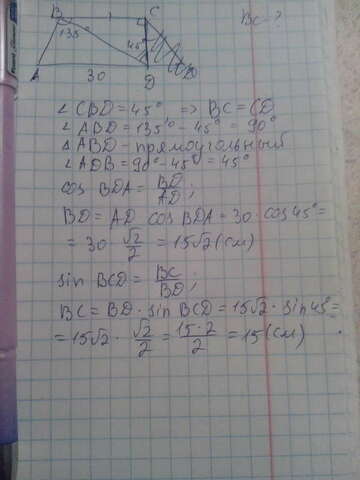 B C BC - ?
135° 45°
A 30 D
∠ CBD = 45° => BC = CD
∠ ABD = 135° - 45° = 90°
△ ABD - прямоугольный
∠ ADB = 90° - 45° = 45°
cos BDA = BD/AD;
BD = AD cos BDA = 30 · cos 45° =
= 30 · √2/2 = 15√2 (см)
sin BCD = BC/BD;
BC = BD · sin BCD = 15√2 · sin 45° =
= 15√2 · √2/2 = 15·2/2 = 15 (см)